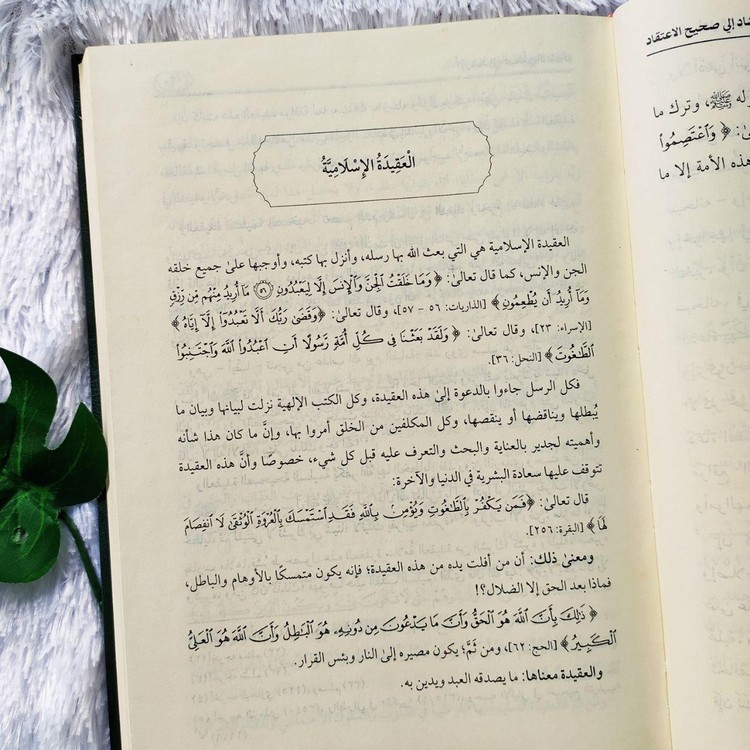 ـاد إلي صحيح الاعتقاد
ـله ﷺ، وترك ما
ـىٰ: ﴿ وَٱعْتَصِمُوا۟
هذه الأمة إلا ما
الْعَقِيدَةُ الإِسْلَامِيَّةُ
العقيدة الإسلامية هي التي بعث الله بها رسله، وأنزل بها كتبه، وأوجبها علىٰ جميع خلقه
الجن والإنس، كما قال تعالىٰ: ﴿ وَمَا خَلَقْتُ ٱلْجِنَّ وَٱلْإِنسَ إِلَّا لِيَعْبُدُونِ ۝٥٦ مَآ أُرِيدُ مِنْهُم مِّن رِّزْقٍ
وَمَآ أُرِيدُ أَن يُطْعِمُونِ ﴾ [الذاريات: ٥٦ - ٥٧]، وقال تعالىٰ: ﴿ وَقَضَىٰ رَبُّكَ أَلَّا تَعْبُدُوٓا۟ إِلَّآ إِيَّاهُ ﴾
[الإسراء: ٢٣]، وقال تعالىٰ: ﴿ وَلَقَدْ بَعَثْنَا فِى كُلِّ أُمَّةٍ رَّسُولًا أَنِ ٱعْبُدُوا۟ ٱللَّهَ وَٱجْتَنِبُوا۟
ٱلطَّـٰغُوتَ ﴾ [النحل: ٣٦].
فكل الرسل جاءوا بالدعوة إلىٰ هذه العقيدة، وكل الكتب الإلهية نزلت لبيانها وبيان ما
يُبطلها ويناقضها أو ينقصها، وكل المكلفين من الخلق أمروا بها، وإنَّ ما كان هذا شأنه
وأهميته لجدير بالعناية والبحث والتعرف عليه قبل كل شيء، خصوصًا وأنَّ هذه العقيدة
تتوقف عليها سعادة البشرية في الدنيا والآخرة:
قال تعالىٰ: ﴿ فَمَن يَكْفُرْ بِٱلطَّـٰغُوتِ وَيُؤْمِنۢ بِٱللَّهِ فَقَدِ ٱسْتَمْسَكَ بِٱلْعُرْوَةِ ٱلْوُثْقَىٰ لَا ٱنفِصَامَ
لَهَا ﴾ [البقرة: ٢٥٦].
ومعنىٰ ذلك: أن من أفلت يده من هذه العقيدة؛ فإنه يكون متمسكًا بالأوهام والباطل،
فماذا بعد الحق إلا الضلال؟!
﴿ ذَٰلِكَ بِأَنَّ ٱللَّهَ هُوَ ٱلْحَقُّ وَأَنَّ مَا يَدْعُونَ مِن دُونِهِۦ هُوَ ٱلْبَـٰطِلُ وَأَنَّ ٱللَّهَ هُوَ ٱلْعَلِىُّ
ٱلْكَبِيرُ ﴾ [الحج: ٦٢]، ومن ثَمَّ؛ يكون مصيره إلى النار وبئس القرار.
والعقيدة معناها: ما يصدقه العبد ويدين به.